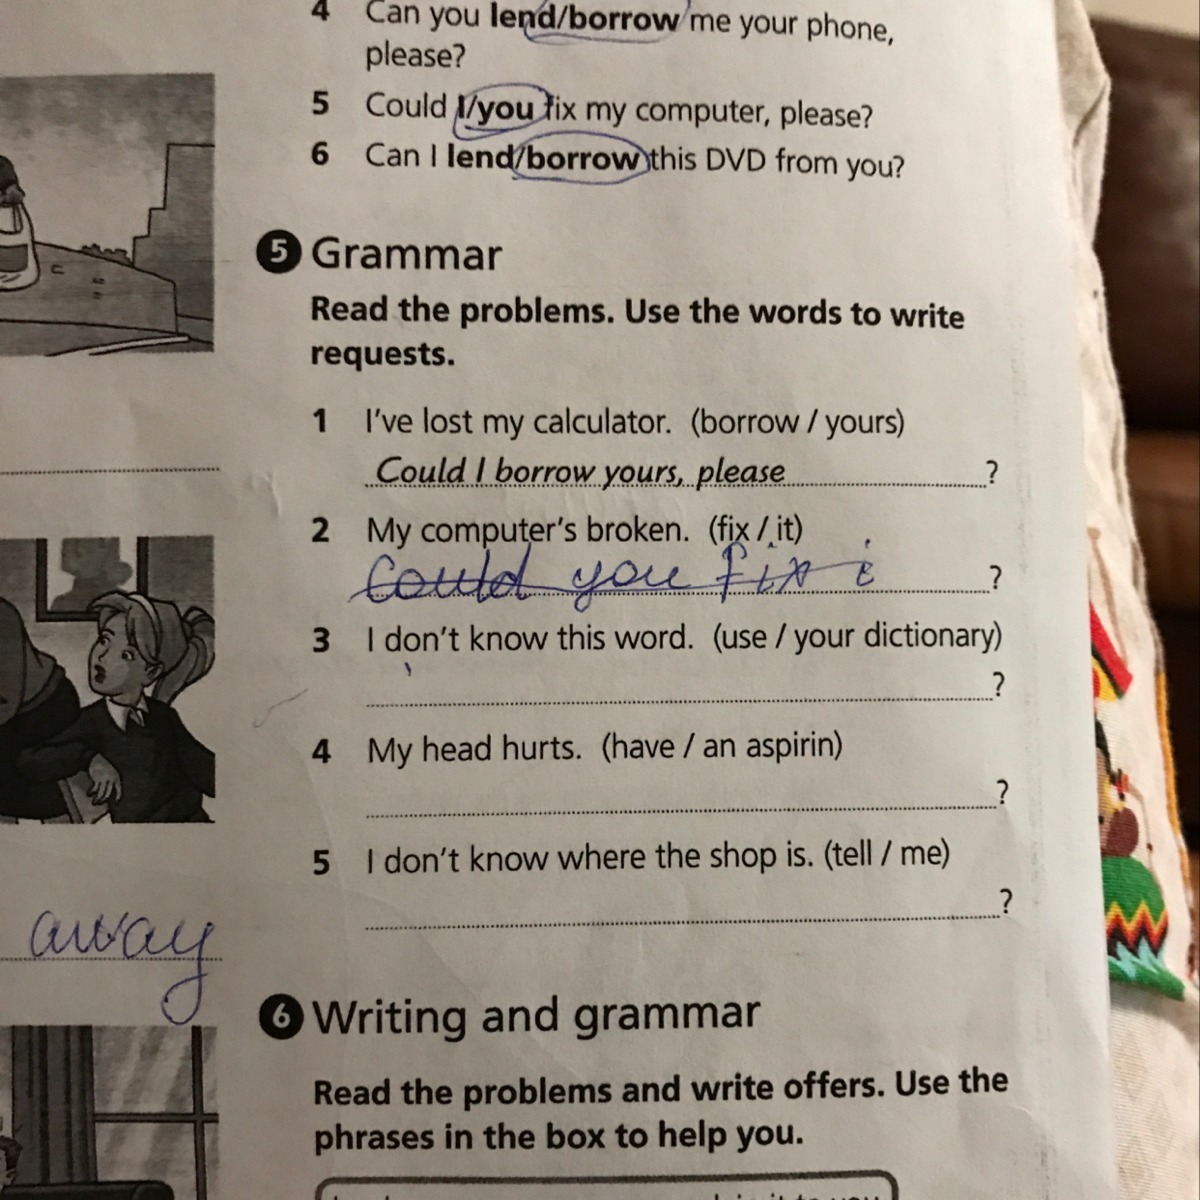 4 Can you lend/borrow me your phone,
please?
5 Could I/you fix my computer, please?
6 Can I lend/borrow this DVD from you?
5 Grammar
Read the problems. Use the words to write
requests.
1 I've lost my calculator. (borrow / yours)
Could I borrow yours, please ?
2 My computer's broken. (fix / it)
Could you fix i ?
3 I don't know this word. (use / your dictionary)
?
4 My head hurts. (have / an aspirin)
?
5 I don't know where the shop is. (tell / me)
?
away
6 Writing and grammar
Read the problems and write offers. Use the
phrases in the box to help you.